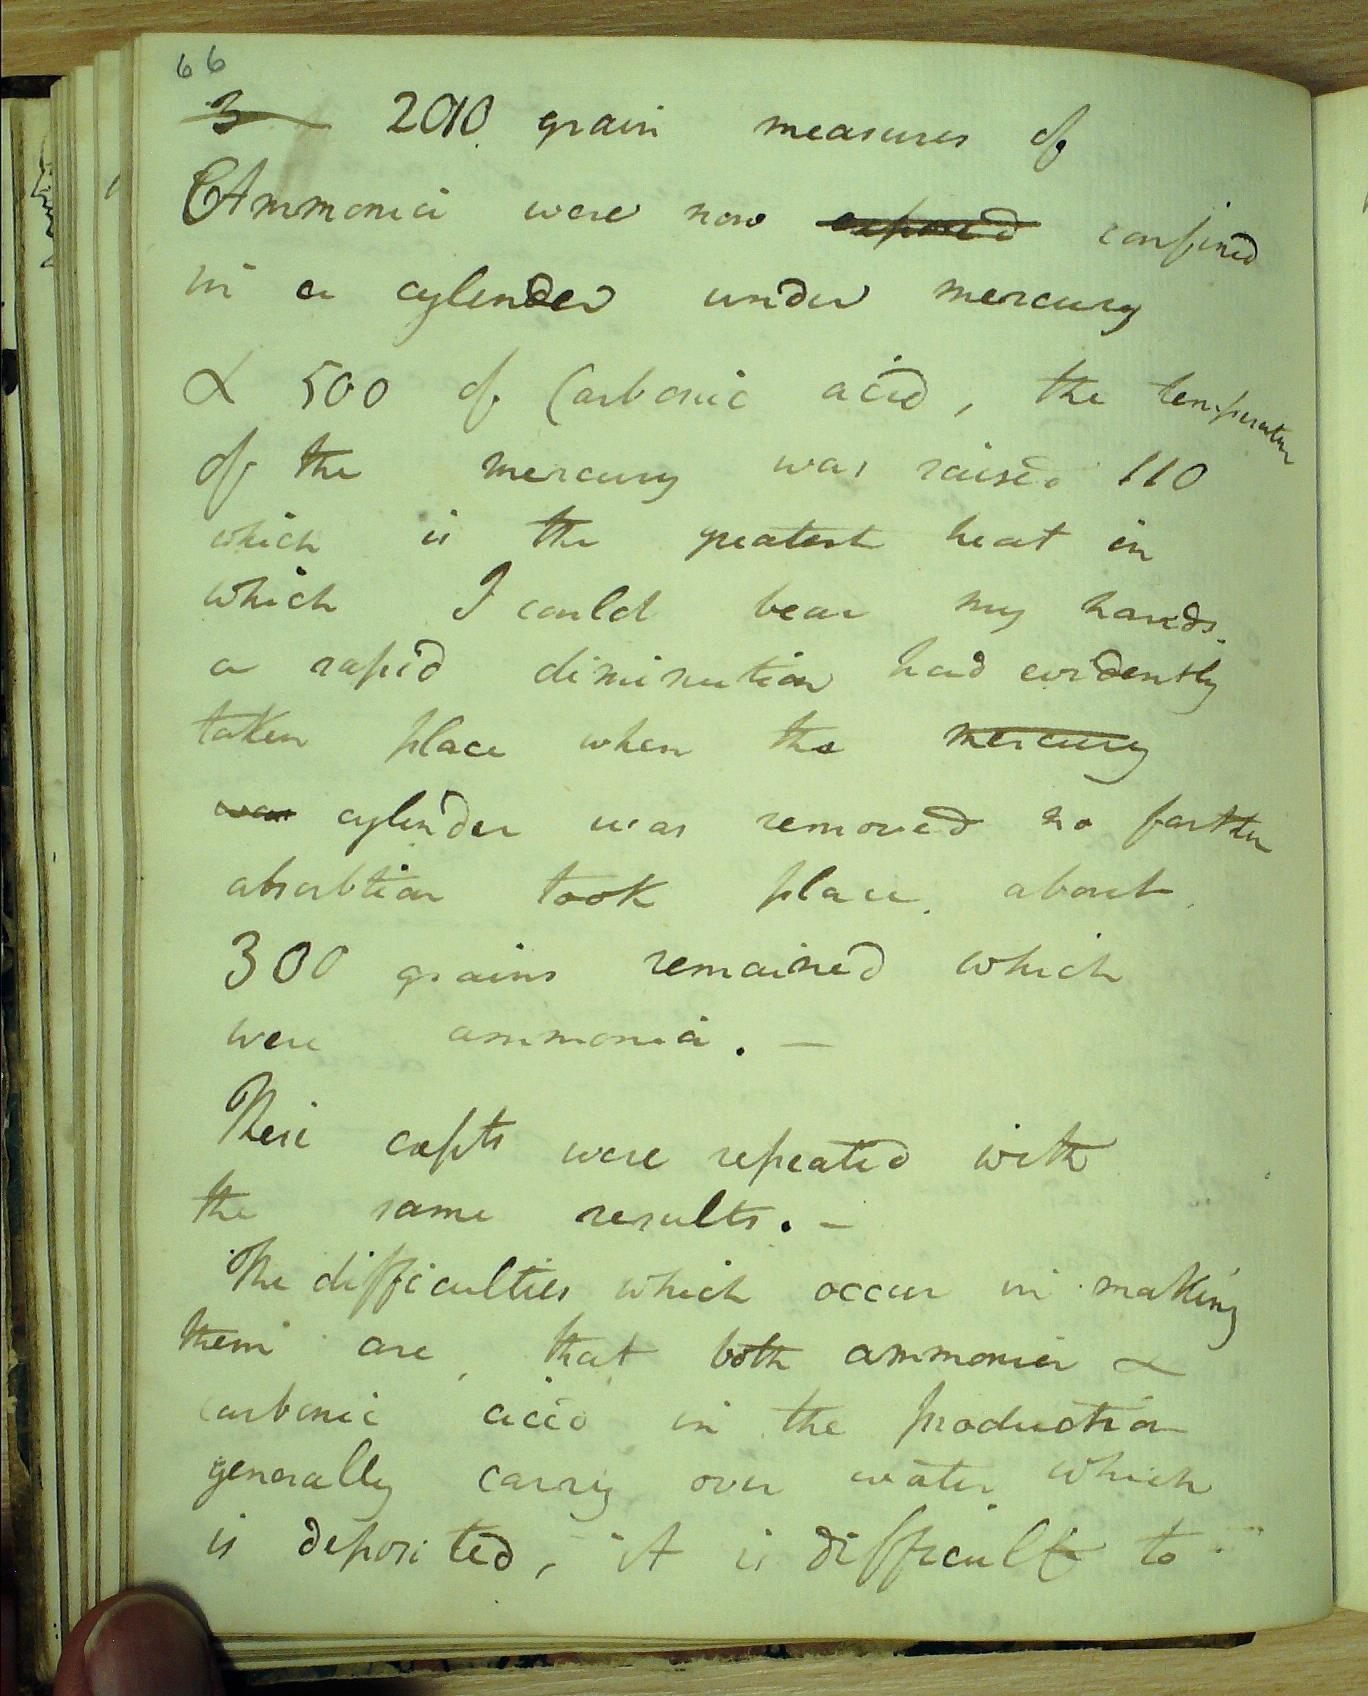 66
3 2010 grain measures of
Ammonia were now exposed confined
in a cylender under mercury
& 500 of Carbonic acid, the temperatur
of the mercury was raised 110
which is the greatest heat in
which I could bear my hands.
a rapid diminution had evidently
taken place when the mercury
was cylinder was removed no farther
absorbtion took place. about
300 grains remained which
were ammonia. –
These expts were repeated with
the same results. –
The difficulties which occur in making
them are, that both ammonia &
carbonic acid in the production
generally carry over water which
is deposited, it is difficult to